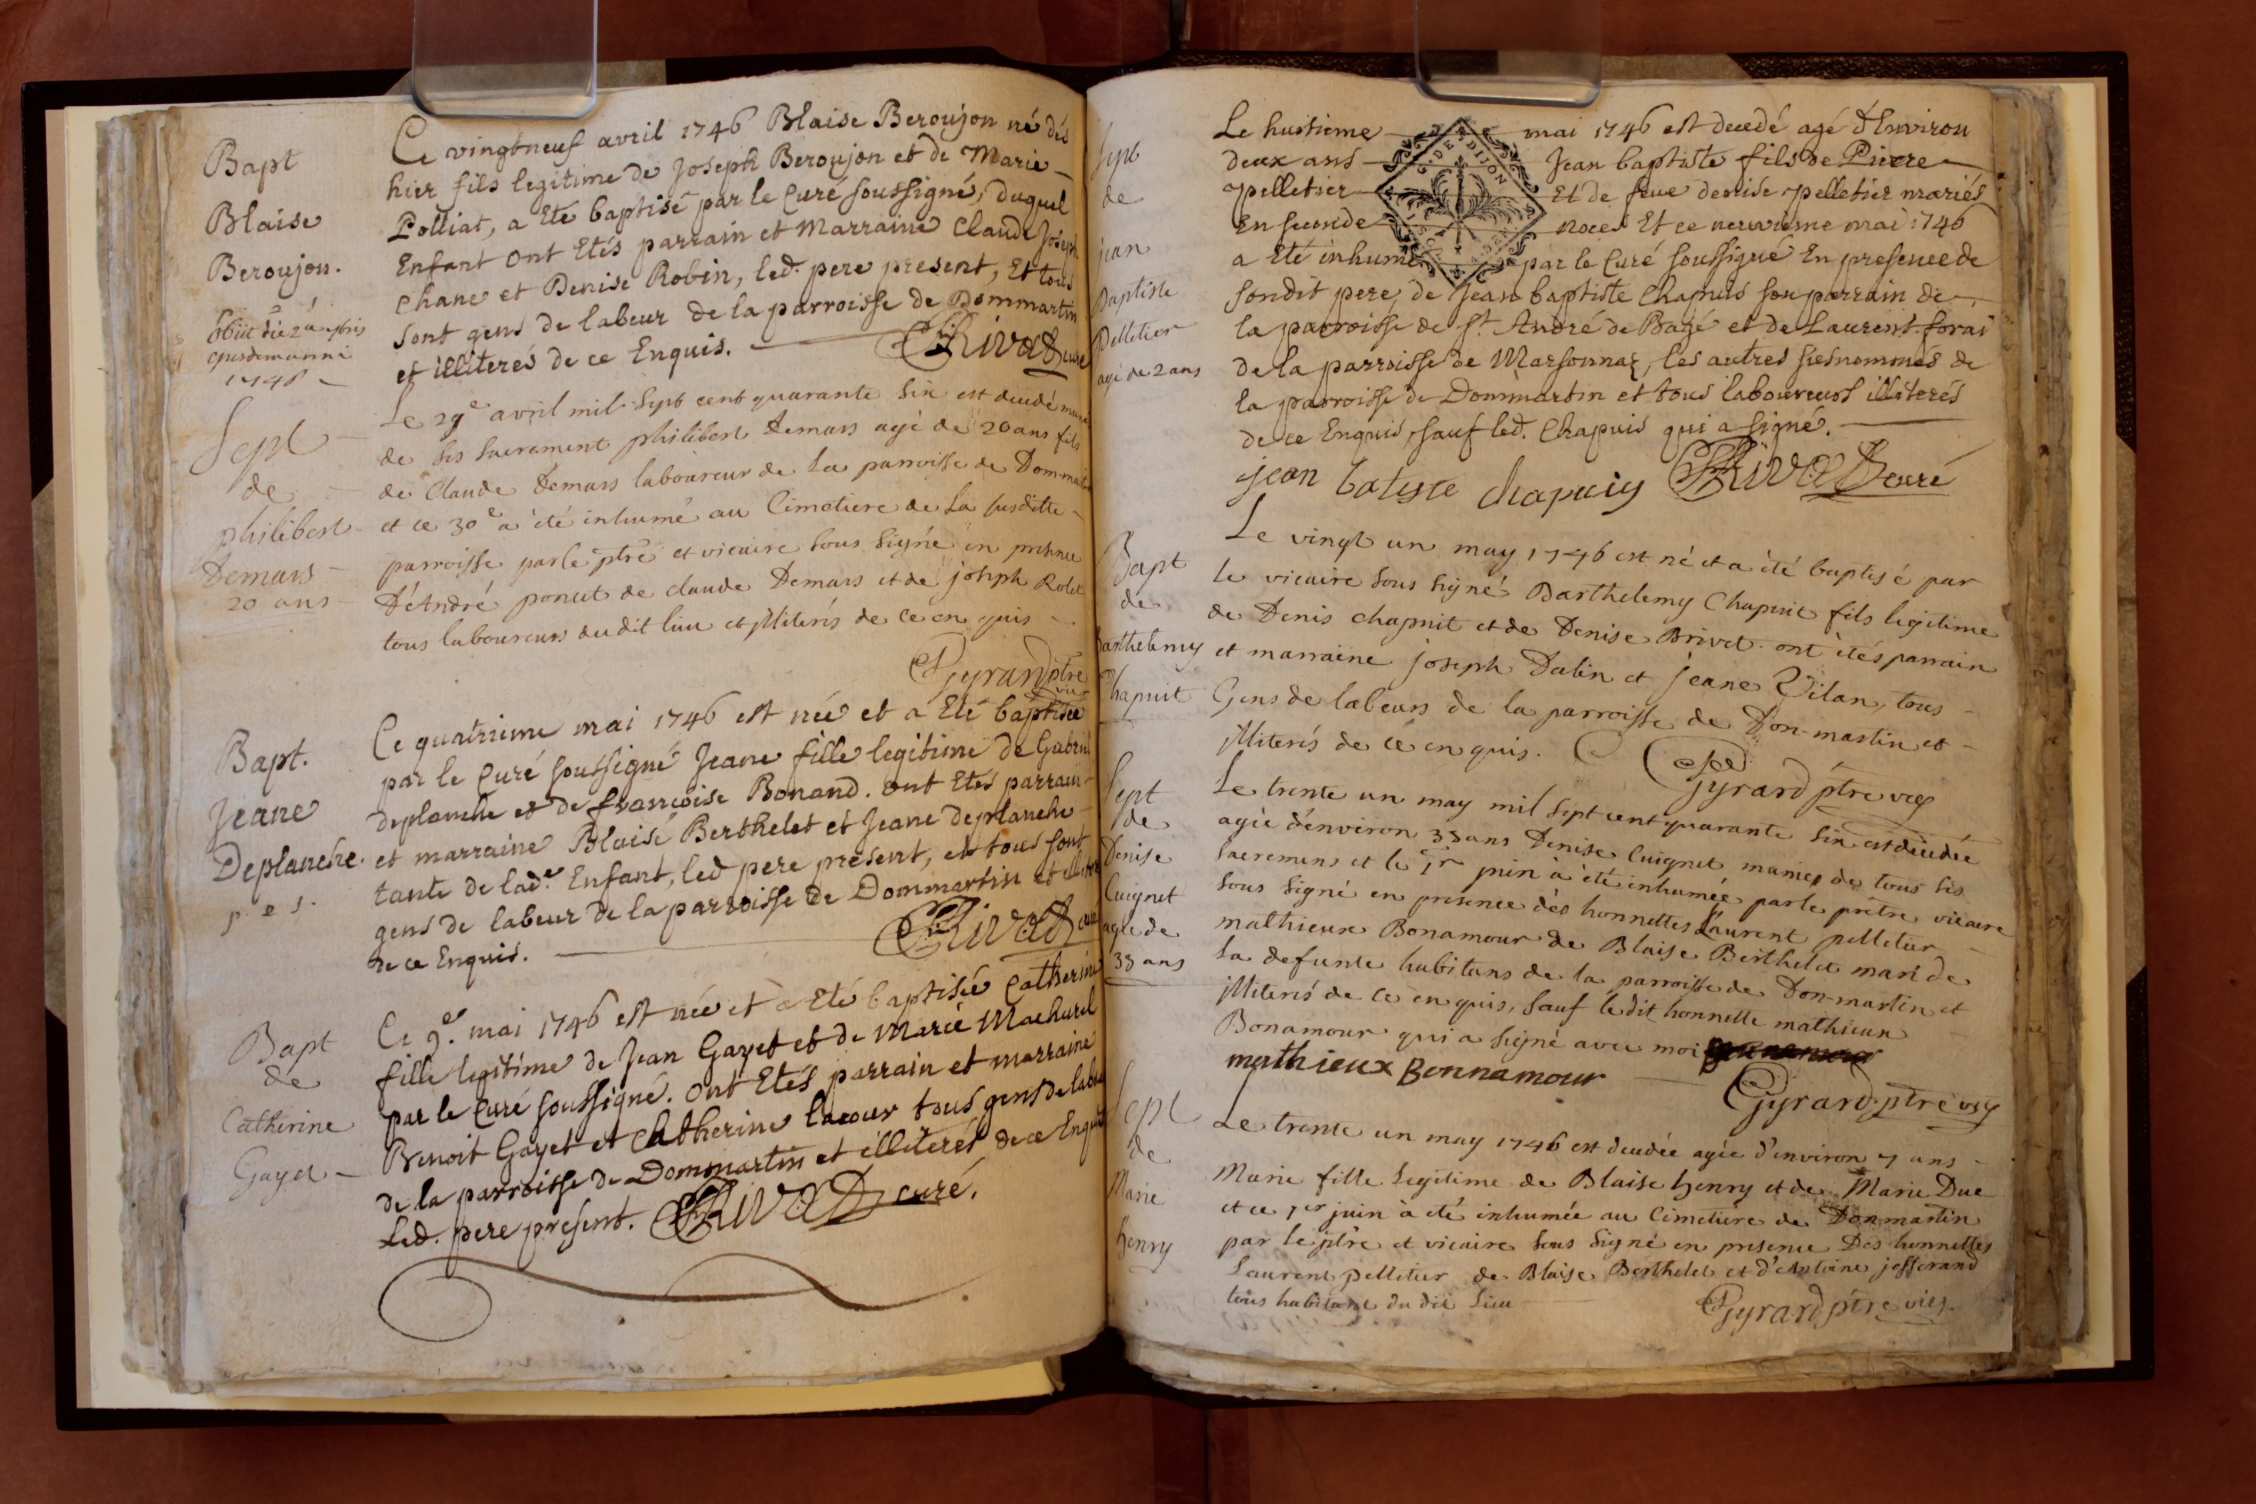 Bapt
Blaise
Beroujon.
obiit die 2a 7bris
1746
Ce vingtneuf avril 1746 Blaise Beroujon né dés
hier fils legitime de Joseph Beroujon et de Marie
Polliat, a Eté baptisé par le Curé soussigné, duquel
Enfant ont Etés parrain et Marraine Claude Joseph
Chane et Denise Robin, led. pere present, Et tous
sont gens de labeur de la parroisse de Dommartin
et illiterés de ce Enquis. Rivat curé
Sept
de
philibert
Demars
20 ans
Le 29e avril mil sept cent quarante six est decedé muni
de ses sacrement philibert Demars agé de 20 ans fils
de Claude Demars laboureur de la parroisse de Dommartin
et ce 30e a été inhumé au Cimetiere de la susditte
parroisse par le ptre et vicaire sous signé en presence
d'André poncet de claude Demars et de joseph Rolet
tous laboureurs dudit lieu et illiterés de ce en quis
Gyrard ptre vic
Bapt.
Jeane
Deplanche.
Ce quatrieme mai 1746 est née et a Eté baptisée
par le Curé soussigné Jeane fille legitime de Gabriel
deplanche et de françoise Bonand. ont Etés parrain
et marraine Blaise Berthelet et Jeane deplanche
tante de lade. Enfant, led pere present, et tous sont
gens de labeur de la parroisse de Dommartin et illiterés
de ce Enquis. Rivat curé
Bapt
de
Catherine
Gayet
Ce 9e. mai 1746 est née et a Eté baptisée Catherine
fille legitime de Jean Gayet et de Marie Machurel
par le Curé soussigné. ont Etés parrain et marraine
Benoit Gayet et Catherine lacour tous gens de labeur
de la parroisse de Dommartin et illiterés de ce Enquis
Led. pere present. Rivat curé.
Sept
de
jean
Baptiste
Pelletier
agé de 2 ans
Le huitieme mai 1746 est decedé agé d'Environ
deux ans Jean baptiste fils de Pierre
pelletier Et de feue denise pelletier mariés
En seconde noces Et ce neuvieme mai 1746
a Eté inhumé par le Curé soussigné En presence de
sondit pere, de Jean baptiste Chapuis son parrain de
la parroisse de St. André de Bagé et de Laurent forai
de la parroisse de Marsonnaz, les autres susnommés de
la parroisse de Dommartin et tous laboureurs illiterés
de ce Enquis, sauf led. Chapuis qui a signé.
jean batiste chapuis Rivat curé
DE DIJON
Bapt
de
Barthelemy
Chapuit
Le vingt un may 1746 est né et a été baptisé par
le vicaire sous signé Barthelemy Chapuit fils legitime
de Denis chapuit et de Denise Brivet. ont étés parrain
et marraine joseph Dalin et jeane Vilan, tous
Gens de labeurs de la parroisse de Don-martin et
jlliterés de cé en quis.
Gyrard ptre vic
Sept
de
Denise
Cuignet
agée de
33 ans
Le trente un may mil sept cent quarante six est décédée
agée d'environ 33 ans Denise Cuignet munie de tous ses
sacremens et le 1er juin à été inhumée par le prêtre vicaire
sous signé en presence dès honnettes Laurent pelletier
mathieux Bonamour de Blaise Berthelet mari de
la defunte habitans de la parroisse de Don-martin et
jlliterés de ce en quis, sauf le dit honnette mathieux
Bonamour qui a signé avec moi
mathieux Bonnamour
Gyrard ptre vic
Sept
de
Marie
henry
Le trente un may 1746 est decedée agée d'environ 7 ans
Marie fille legitime de Blaise henry et de Marie Duc
et ce 1er juin à été inhumée au Cimetiere de Donmartin
par le ptre et vicaire sous signé en presence Dès honnettes
Laurent pelletier de Blaise Berthelet et d'Antoine josserand
tous habitant du dit lieu
Gyrard ptre vic.